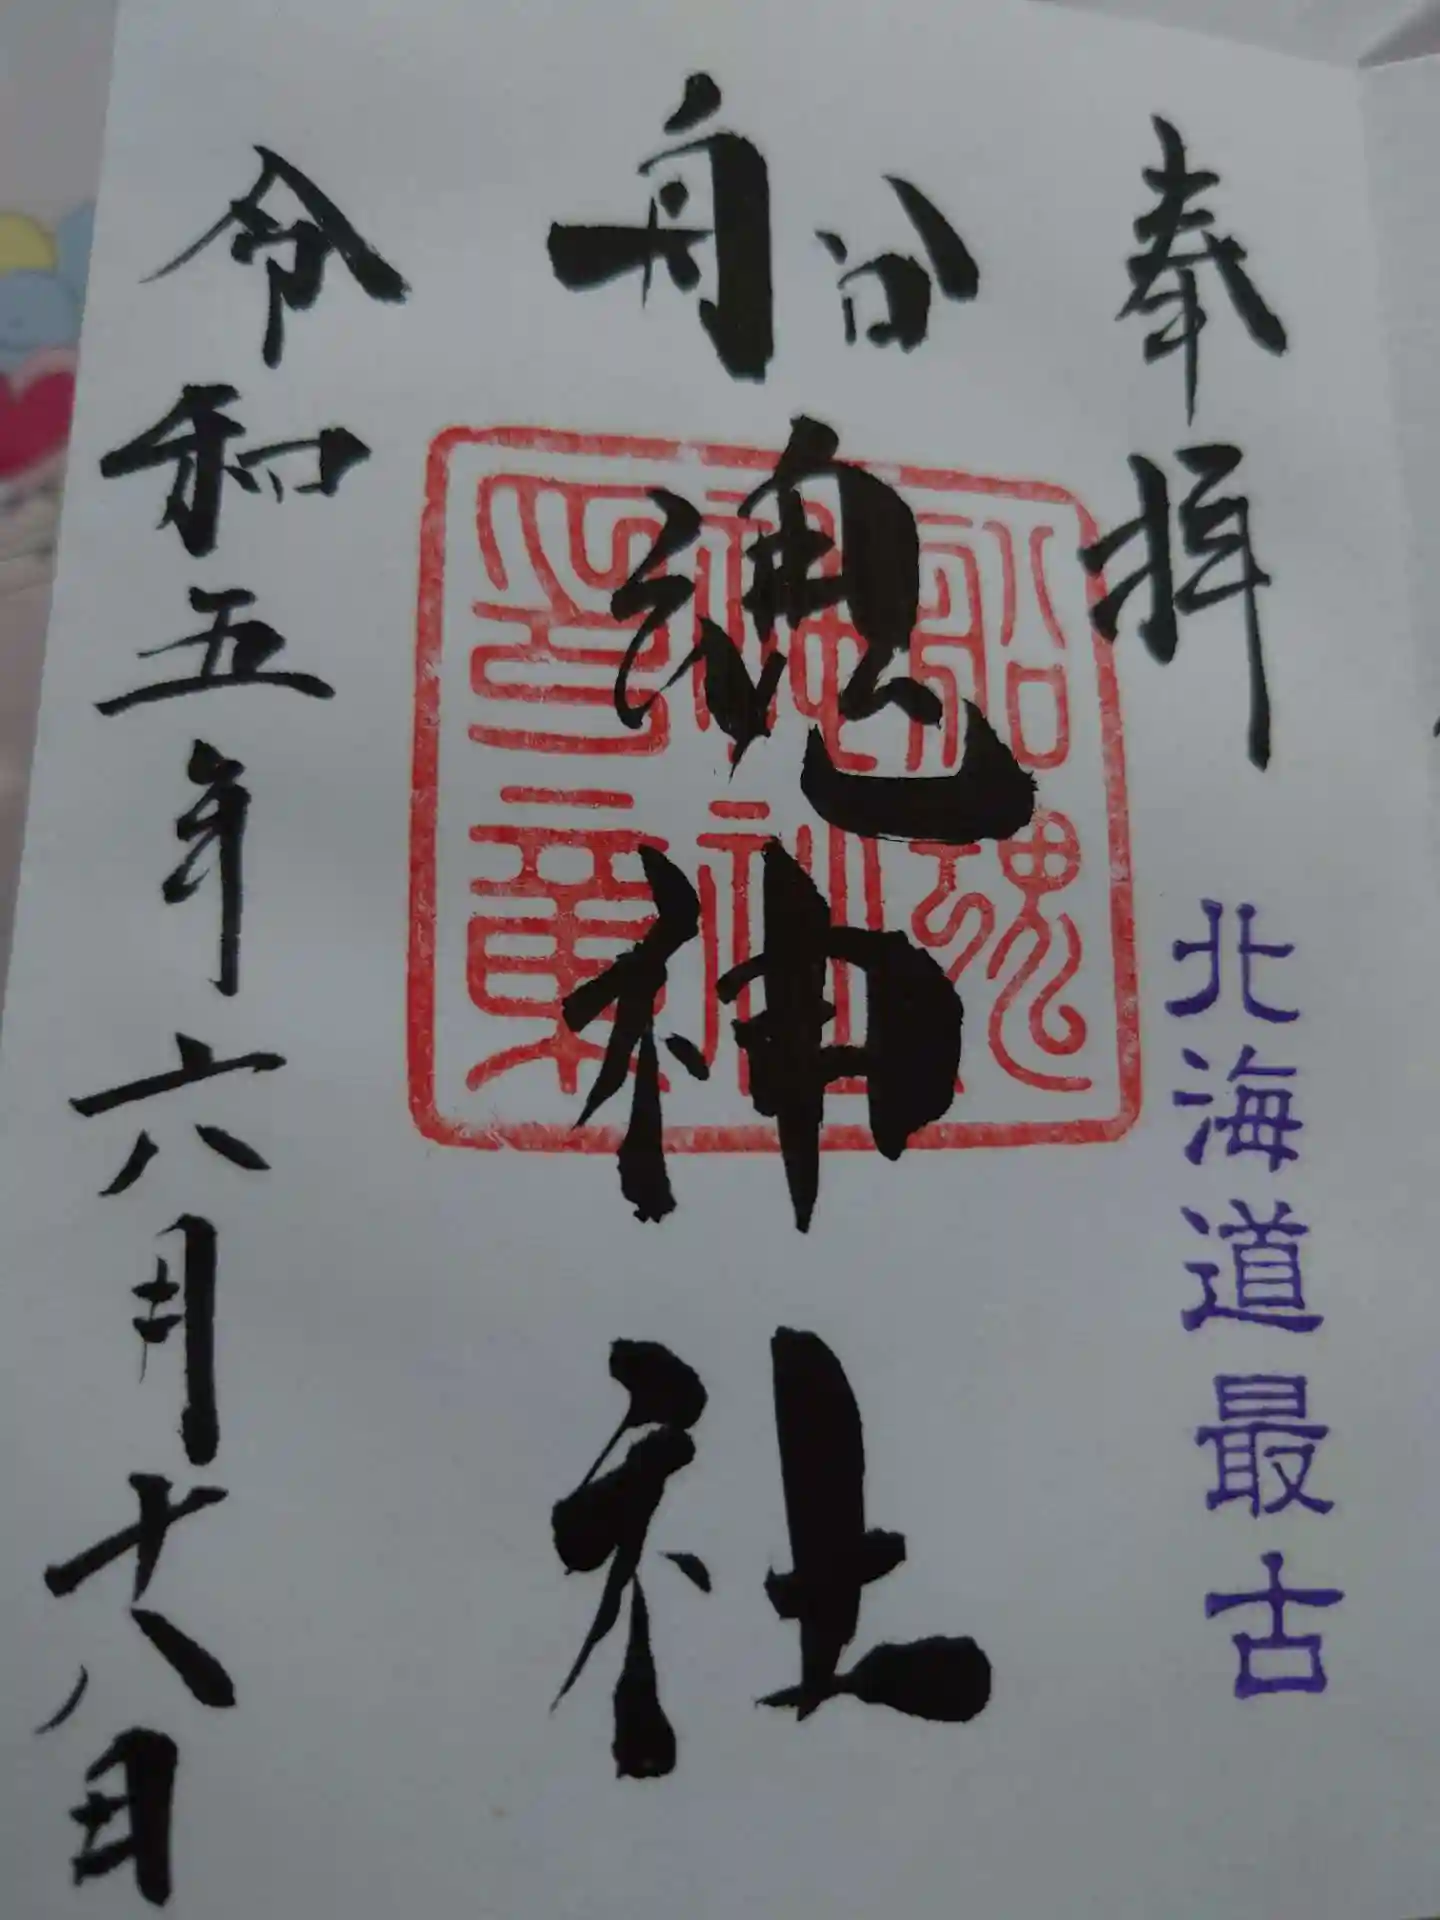 奉拝
北海道最古
船魂神社
船魂神社印章
令和五年六月十八日